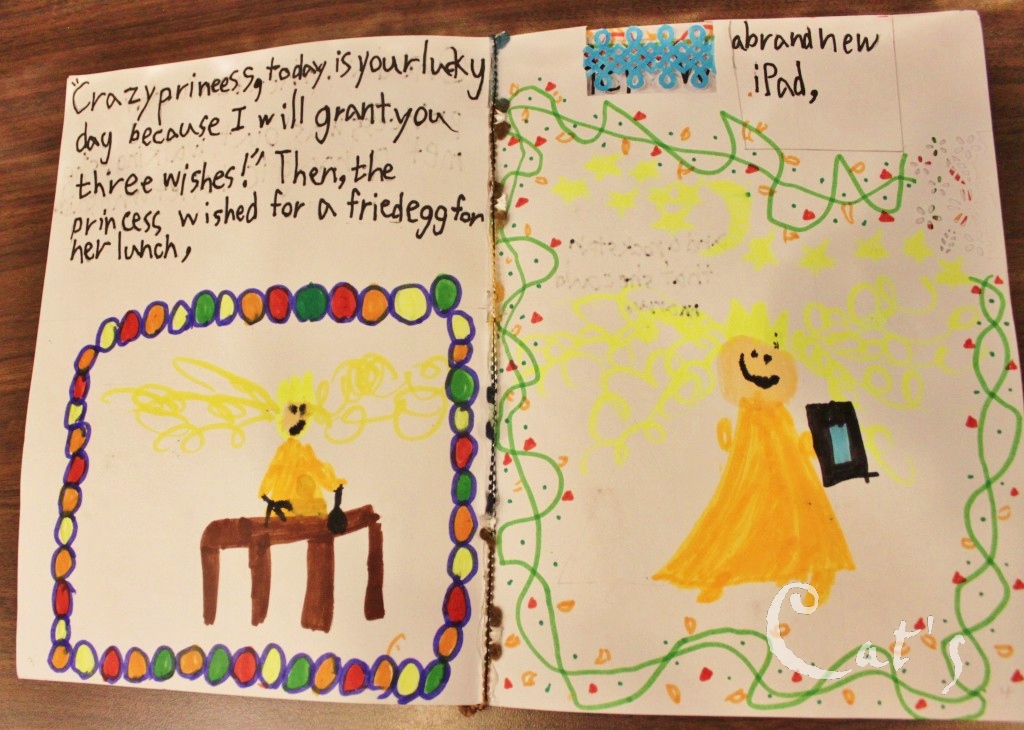 "Crazy prineess, today is your lucky
day because I will grant you
three wishes!" Then, the
princess wished for a fried egg for
her lunch,
a brand new
iPad,
Cat's